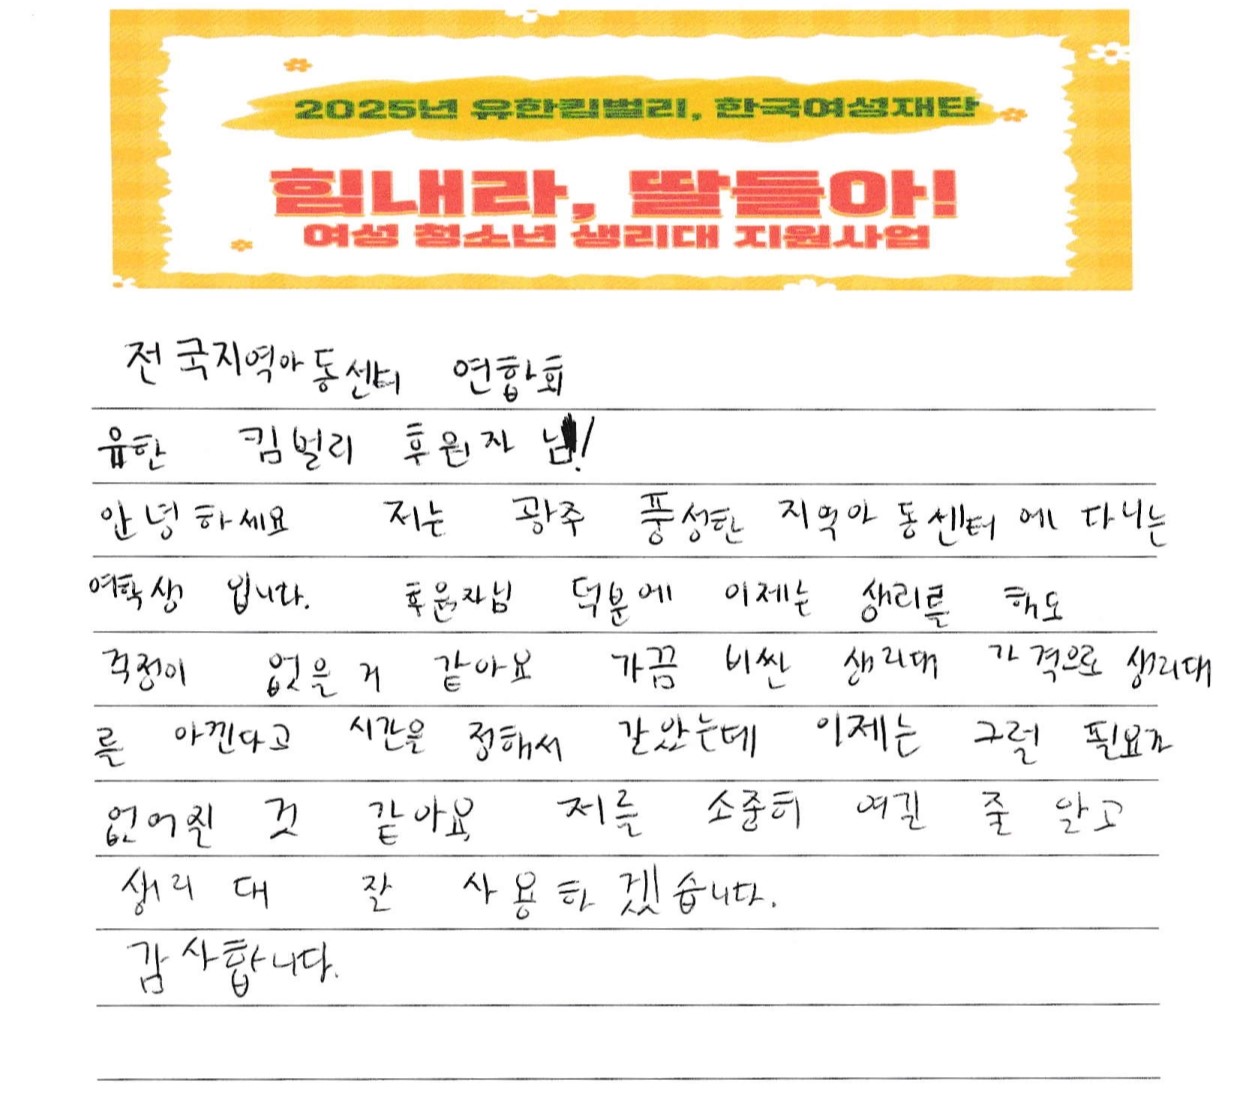 2025년 유한킴벌리, 한국여성재단
힘내라, 딸들아!
여성 청소년 생리대 지원사업
전국지역아동센터 연합회
유한 킴벌리 후원자 님!
안녕하세요 저는 광주 풍성한 지역아동센터에 다니는
여학생 입니다. 후원자님 덕분에 이제는 생리를 해도
걱정이 없을 거 같아요 가끔 비싼 생리대 가격으로 생리대
를 아낀다고 시간을 정해서 갈았는데 이제는 그럴 필요가
없어질 것 같아요 저를 소중히 여길 줄 알고
생리대 잘 사용하겠습니다.
감사합니다.